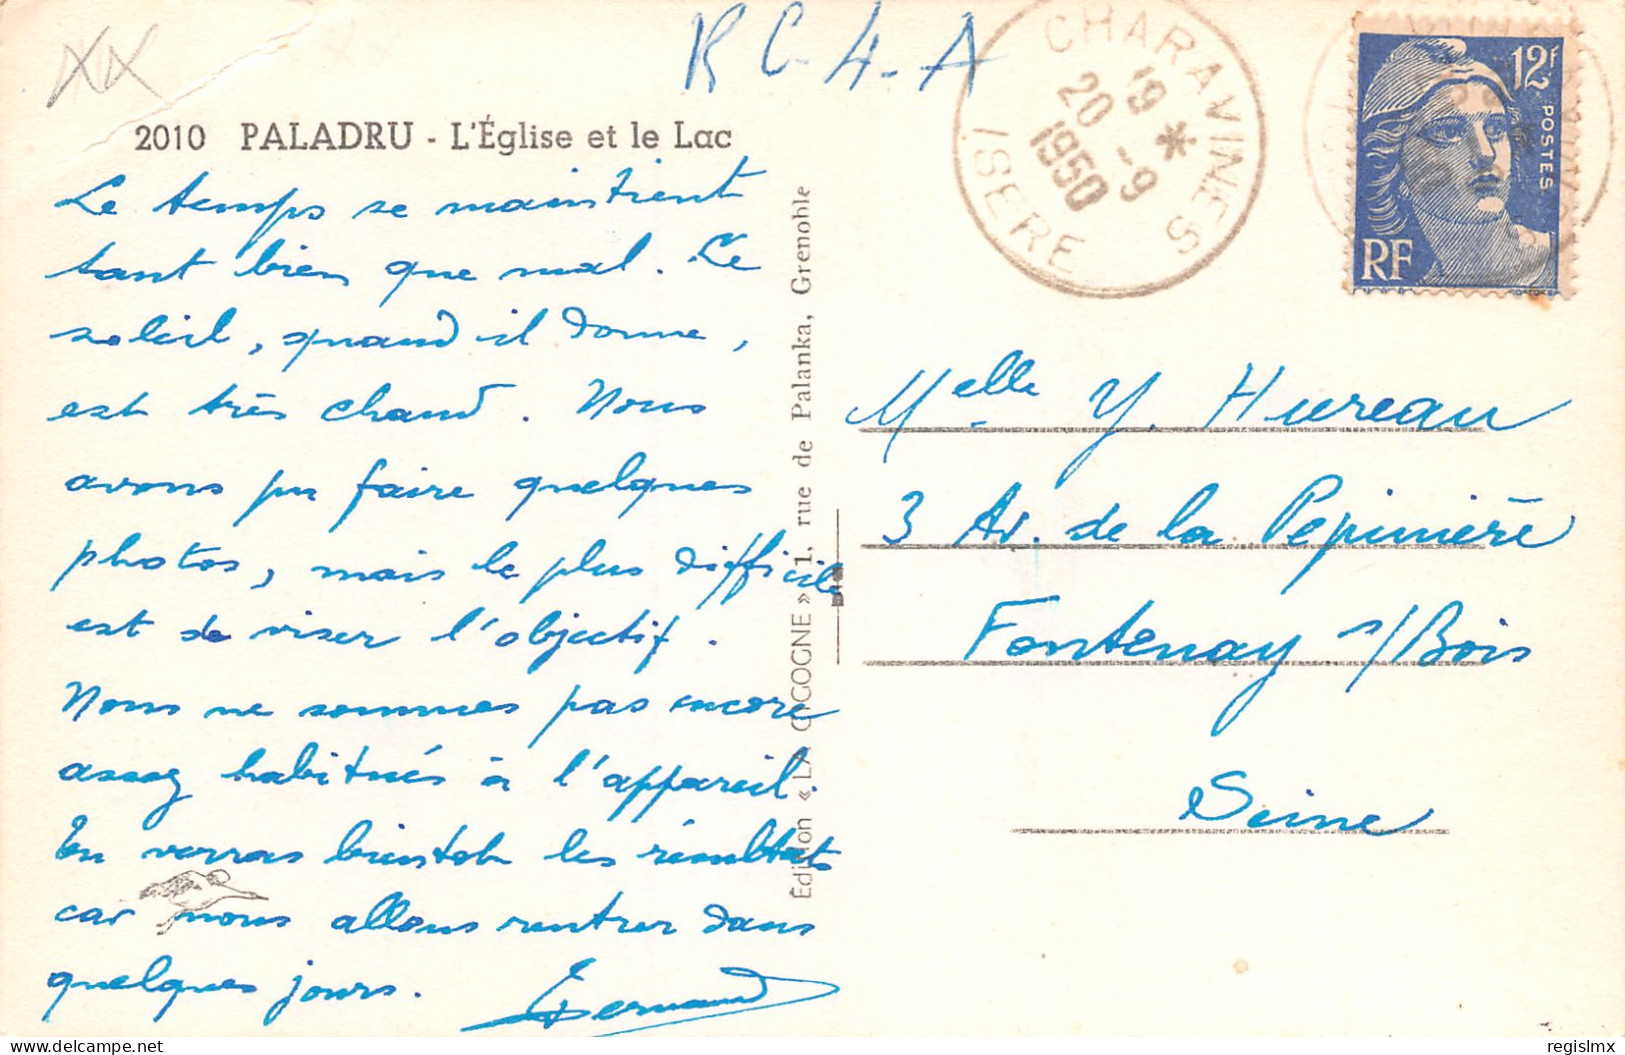 R C-4-A
2010 PALADRU - L'Église et le Lac
Le temps se maintient
tant bien que mal. Le
soleil, quand il donne,
est très chaud. Nous
avons pu faire quelques
photos, mais le plus difficile
est de viser l'objectif.
Nous ne sommes pas encore
assez habitués à l'appareil.
Tu verras bientôt les résultats
car nous allons rentrer dans
quelques jours.
Édition « LA CIGOGNE » 1, rue de Palanka, Grenoble
CHARAVINES
19 *
20 - 9
1950
ISERE
12F
POSTES
RF
Melle Y. Hureau
3 Av. de la Pépinière
Fontenay s/Bois
Seine
regislmx
delcampe.net